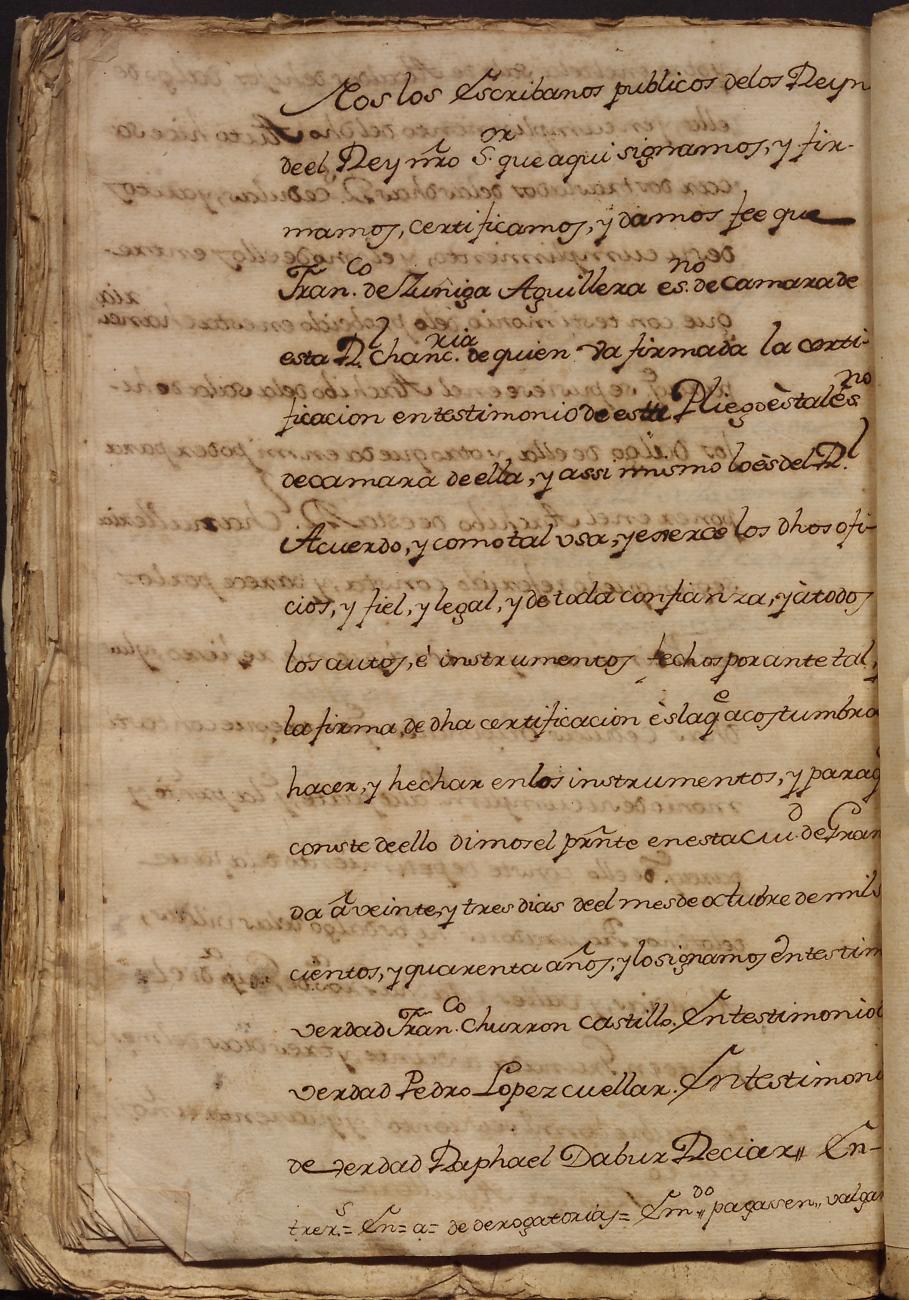 Nos los Escribanos publicos delos Reyn
de el Rey nr̃o S.or que aqui signamos, y fir-
mamos, certificamos, y damos fee que
Fran.co de Zuñiga Aguillera es.no de camara de
esta R.l Chanc.ria de quien va firmada la certi-
ficacion en testimonio de este Pliego ès tal es.no
de camara de ella, y assi mismo lo ès del R.l
Acuerdo, y como tal vsa, y exerce los dhos ofi-
cios, y fiel, y legal, y de toda confianza, y à todos
los autos, è instrumentos fechos por ante tal,
la firma de dha certificacion ès la q.e acostumbra
hacer, y hechar en los instrumentos, y para q
conste de ello dimos el pr̃nte en esta Ciu.d de Gran
da à veinte, y tres dias de el mes de octubre de mil s
cientos, y quarenta años, y lo signamos En testim
verdad Fran.co Churron Castillo. En testimonio d
verdad Pedro Lopez cuellar. En testimoni
de verdad Raphael Dabur Deciar,, En-
trer.s = En = a = de derogatorias = Em.do ,, pagasen ,, valgan